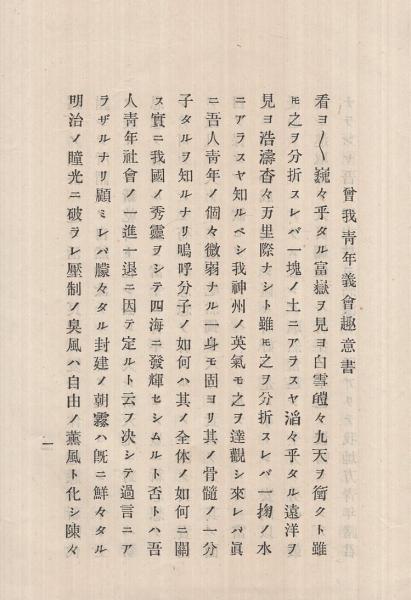 曾我靑年義會趣意書
看ヨ〱巍々乎タル富嶽ヲ見ヨ白雪皚々九天ヲ衝クト雖
𪜈之ヲ分折スレバ一塊ノ土ニアラスヤ滔々乎タル遠洋ヲ
見ヨ浩濤杳々万里際ナシト雖𪜈之ヲ分折スレバ一掬ノ水
ニアラスヤ知ルベシ我神州ノ英氣モ之ヲ達觀シ來レバ眞
ニ吾人靑年ノ個々微弱ナル一身モ固ヨリ其ノ骨髓ノ一分
子タルヲ知ルナリ嗚呼分子ノ如何ハ其ノ全体ノ如何ニ關
ス實ニ我國ノ秀靈ヲシテ四海ニ發輝セシムルト否トハ吾
人靑年社會ノ一進一退ニ因テ定ルト云フ决シテ過言ニア
ラザルナリ顧ミレバ朦々タル封建ノ朝霧ハ既ニ鮮々タル
明治ノ瞳光ニ破ラレ壓制ノ臭風ハ自由ノ薰風ト化シ陳々
一